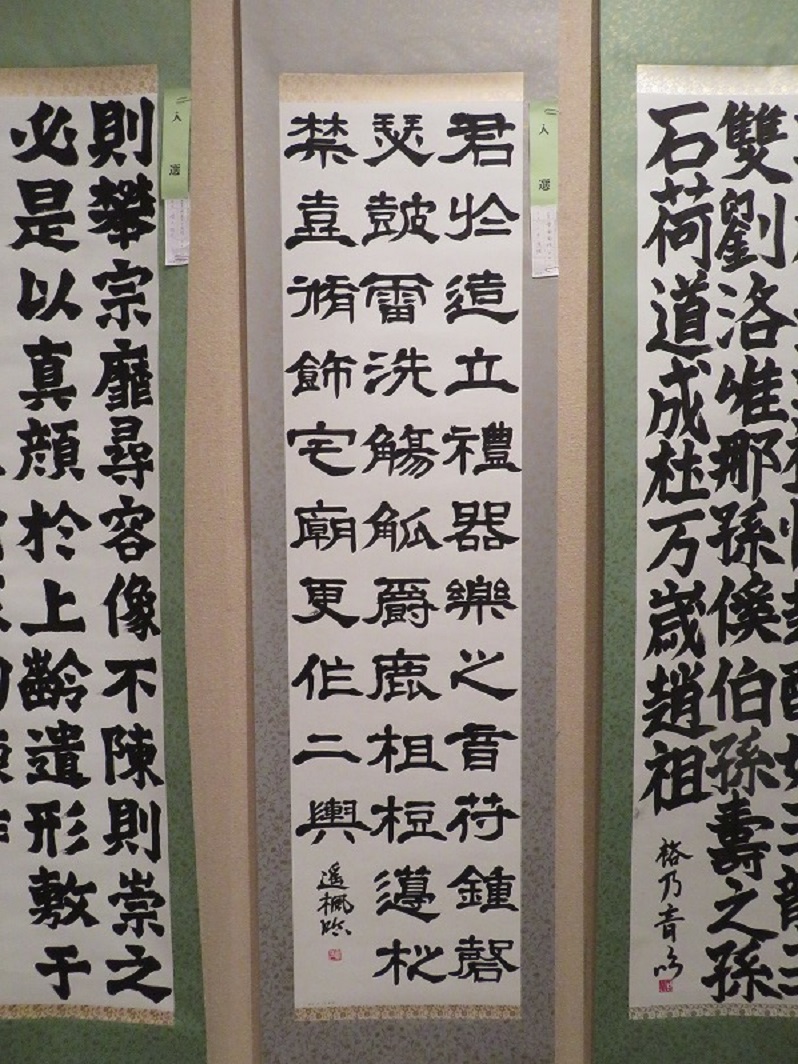 雙劉洛惟那孫侯伯孫壽之孫
石荷道成杜万歳趙祖
入選
君於造立禮器樂之音苻鍾磬
瑟鼓雷洗觴觚爵鹿柤梪邊柉
禁壺脩飾宅廟更作二輿
入選
則攀宗靡尋容像不陳則崇之
必是以真顔於上齡遺形敷于